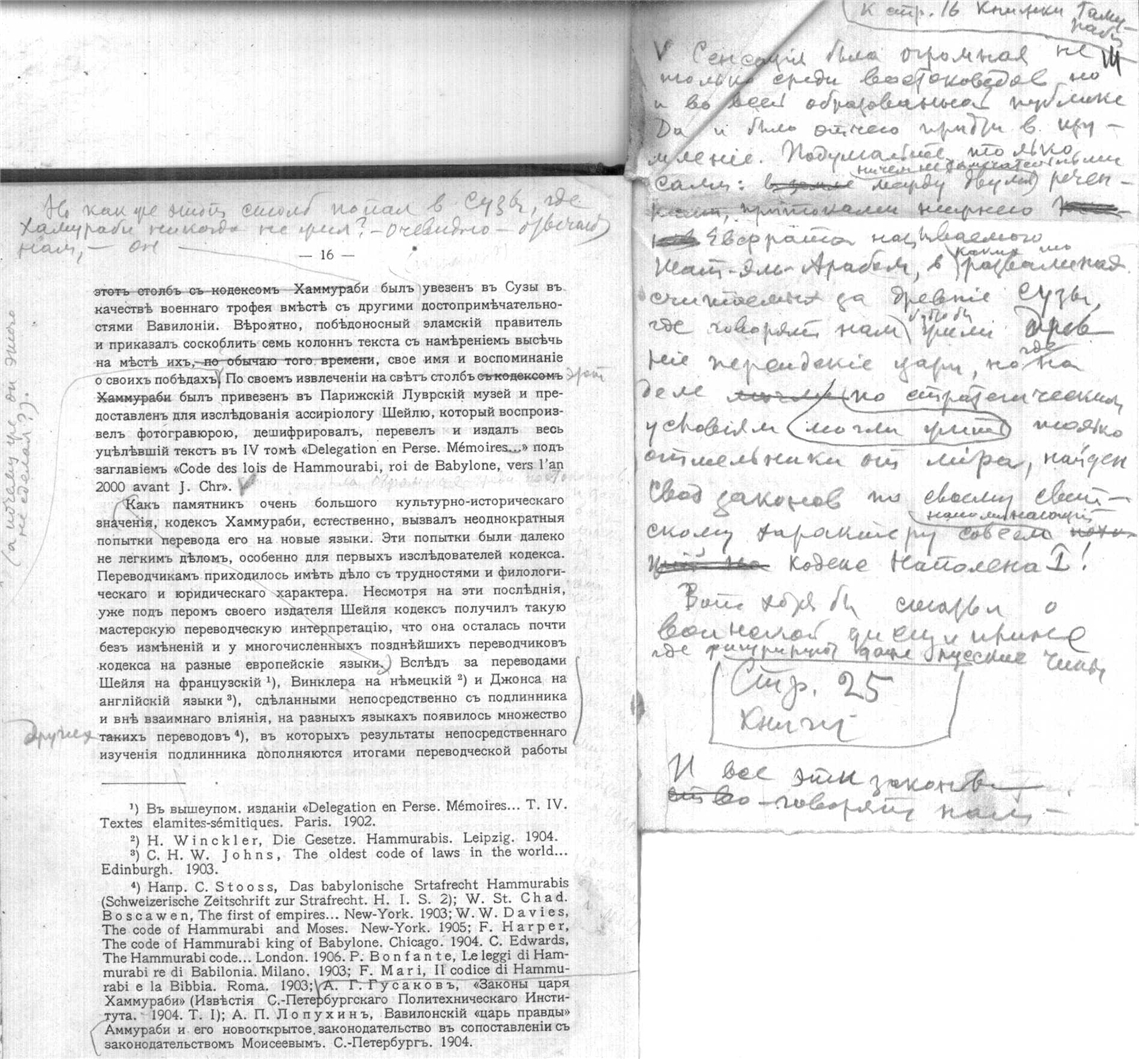 Но как же этот столб попал в Сузы, где
Хамураби никогда не жил? – Очевидно – отвечают
нам, – он
— 16 —
этотъ столбъ съ кодексомъ Хаммураби былъ увезенъ въ Сузы въ
качествѣ военнаго трофея вмѣстѣ съ другими достопримѣчательно-
стями Вавилоніи. Вѣроятно, побѣдоносный эламскій правитель
и приказалъ соскоблить семь колоннъ текста съ намѣреніемъ высѣчь
на мѣстѣ ихъ, по обычаю того времени, свое имя и воспоминаніе
о своихъ побѣдахъ. По своемъ извлеченіи на свѣтъ столбъ съ кодексомъ этот
Хаммураби былъ привезенъ въ Парижскій Луврскій музей и пре-
доставленъ для изслѣдованія ассиріологу Шейлю, который воспроиз-
велъ фотогравюрою, дешифрировалъ, перевелъ и издалъ весь
уцѣлѣвшій текстъ въ IV томѣ «Delegation en Perse. Mémoires...» подъ
заглавіемъ «Code des lois de Hammourabi, roi de Babylone, vers l'an
2000 avant J. Chr».
Какъ памятникъ очень большого культурно-историческаго
значенія, кодексъ Хаммураби, естественно, вызвалъ неоднократныя
попытки перевода его на новые языки. Эти попытки были далеко
не легкимъ дѣломъ, особенно для первыхъ изслѣдователей кодекса.
Переводчикамъ приходилось имѣть дѣло съ трудностями и филологи-
ческаго и юридическаго характера. Несмотря на эти послѣднія,
уже подъ перомъ своего издателя Шейля кодексъ получилъ такую
мастерскую переводческую интерпретацію, что она осталась почти
безъ измѣненій и у многочисленныхъ позднѣйшихъ переводчиковъ
кодекса на разные европейскіе языки. Вслѣдъ за переводами
Шейля на французскій ¹), Винклера на нѣмецкій ²) и Джонса на
англійскій языки ³), сдѣланными непосредственно съ подлинника
и внѣ взаимнаго вліянія, на разныхъ языкахъ появилось множество
других такихъ переводовъ ⁴), въ которыхъ результаты непосредственнаго
изученія подлинника дополняются итогами переводческой работы
¹) Въ вышеупом. изданіи «Delegation en Perse. Mémoires... T. IV.
Textes elamites-sémitiques. Paris. 1902.
²) H. Winckler, Die Gesetze. Hammurabis. Leipzig. 1904.
³) C. H. W. Johns, The oldest code of laws in the world...
Edinburgh. 1903.
⁴) Напр. C. Stooss, Das babylonische Srtafrecht Hammurabis
(Schweizerische Zeitschrift zur Strafrecht. H. I. S. 2); W. St. Chad.
Boscawen, The first of empires... New-York. 1903; W. W. Davies,
The code of Hammurabi and Moses. New-York. 1905; F. Harper,
The code of Hammurabi king of Babylone. Chicago. 1904. C. Edwards,
The Hammurabi code... London. 1906. P. Bonfante, Le leggi di Ham-
murabi re di Babilonia. Milano. 1903; F. Mari, Il codice di Hammu-
rabi e la Bibbia. Roma. 1903; А. Г. Гусаковъ, «Законы царя
Хаммураби» (Извѣстія С.-Петербургскаго Политехническаго Инсти-
тута. 1904. Т. I); А. П. Лопухинъ, Вавилонскій «царь правды»
Аммураби и его новооткрытое законодательство въ сопоставленіи съ
законодательствомъ Моисеевымъ. С.-Петербургъ. 1904.
(а почему же он этого
не сделал?).
К стр. 16 книжки Хаму-
раби
V Сенсація была огромная не
только среди востоковедов но
и во всей образованной публике
Да и было отчего придти в изу-
мленіе. Подумайте только
ничем не замечательными
сами: между двумя речен-
ками, притоками нижнего
Евфрата называемого
Шат-эль-Арабом, в каких то развалинах
считаемых за древніе Сузы,
где говорят нам будто бы жили древ-
ніе персидскіе цари, но где на
деле по стратегическим
условіям могли жить только
отшельники от міра, найден
свод законов по своему свет-
скому характеру совсем напоминающій
кодекс Наполеона I!
Вот хотя бы статьи о
воинской дисциплине
где фигурируют даже русские чины
Стр. 25
книги
И все эти законы
– говорят нам –